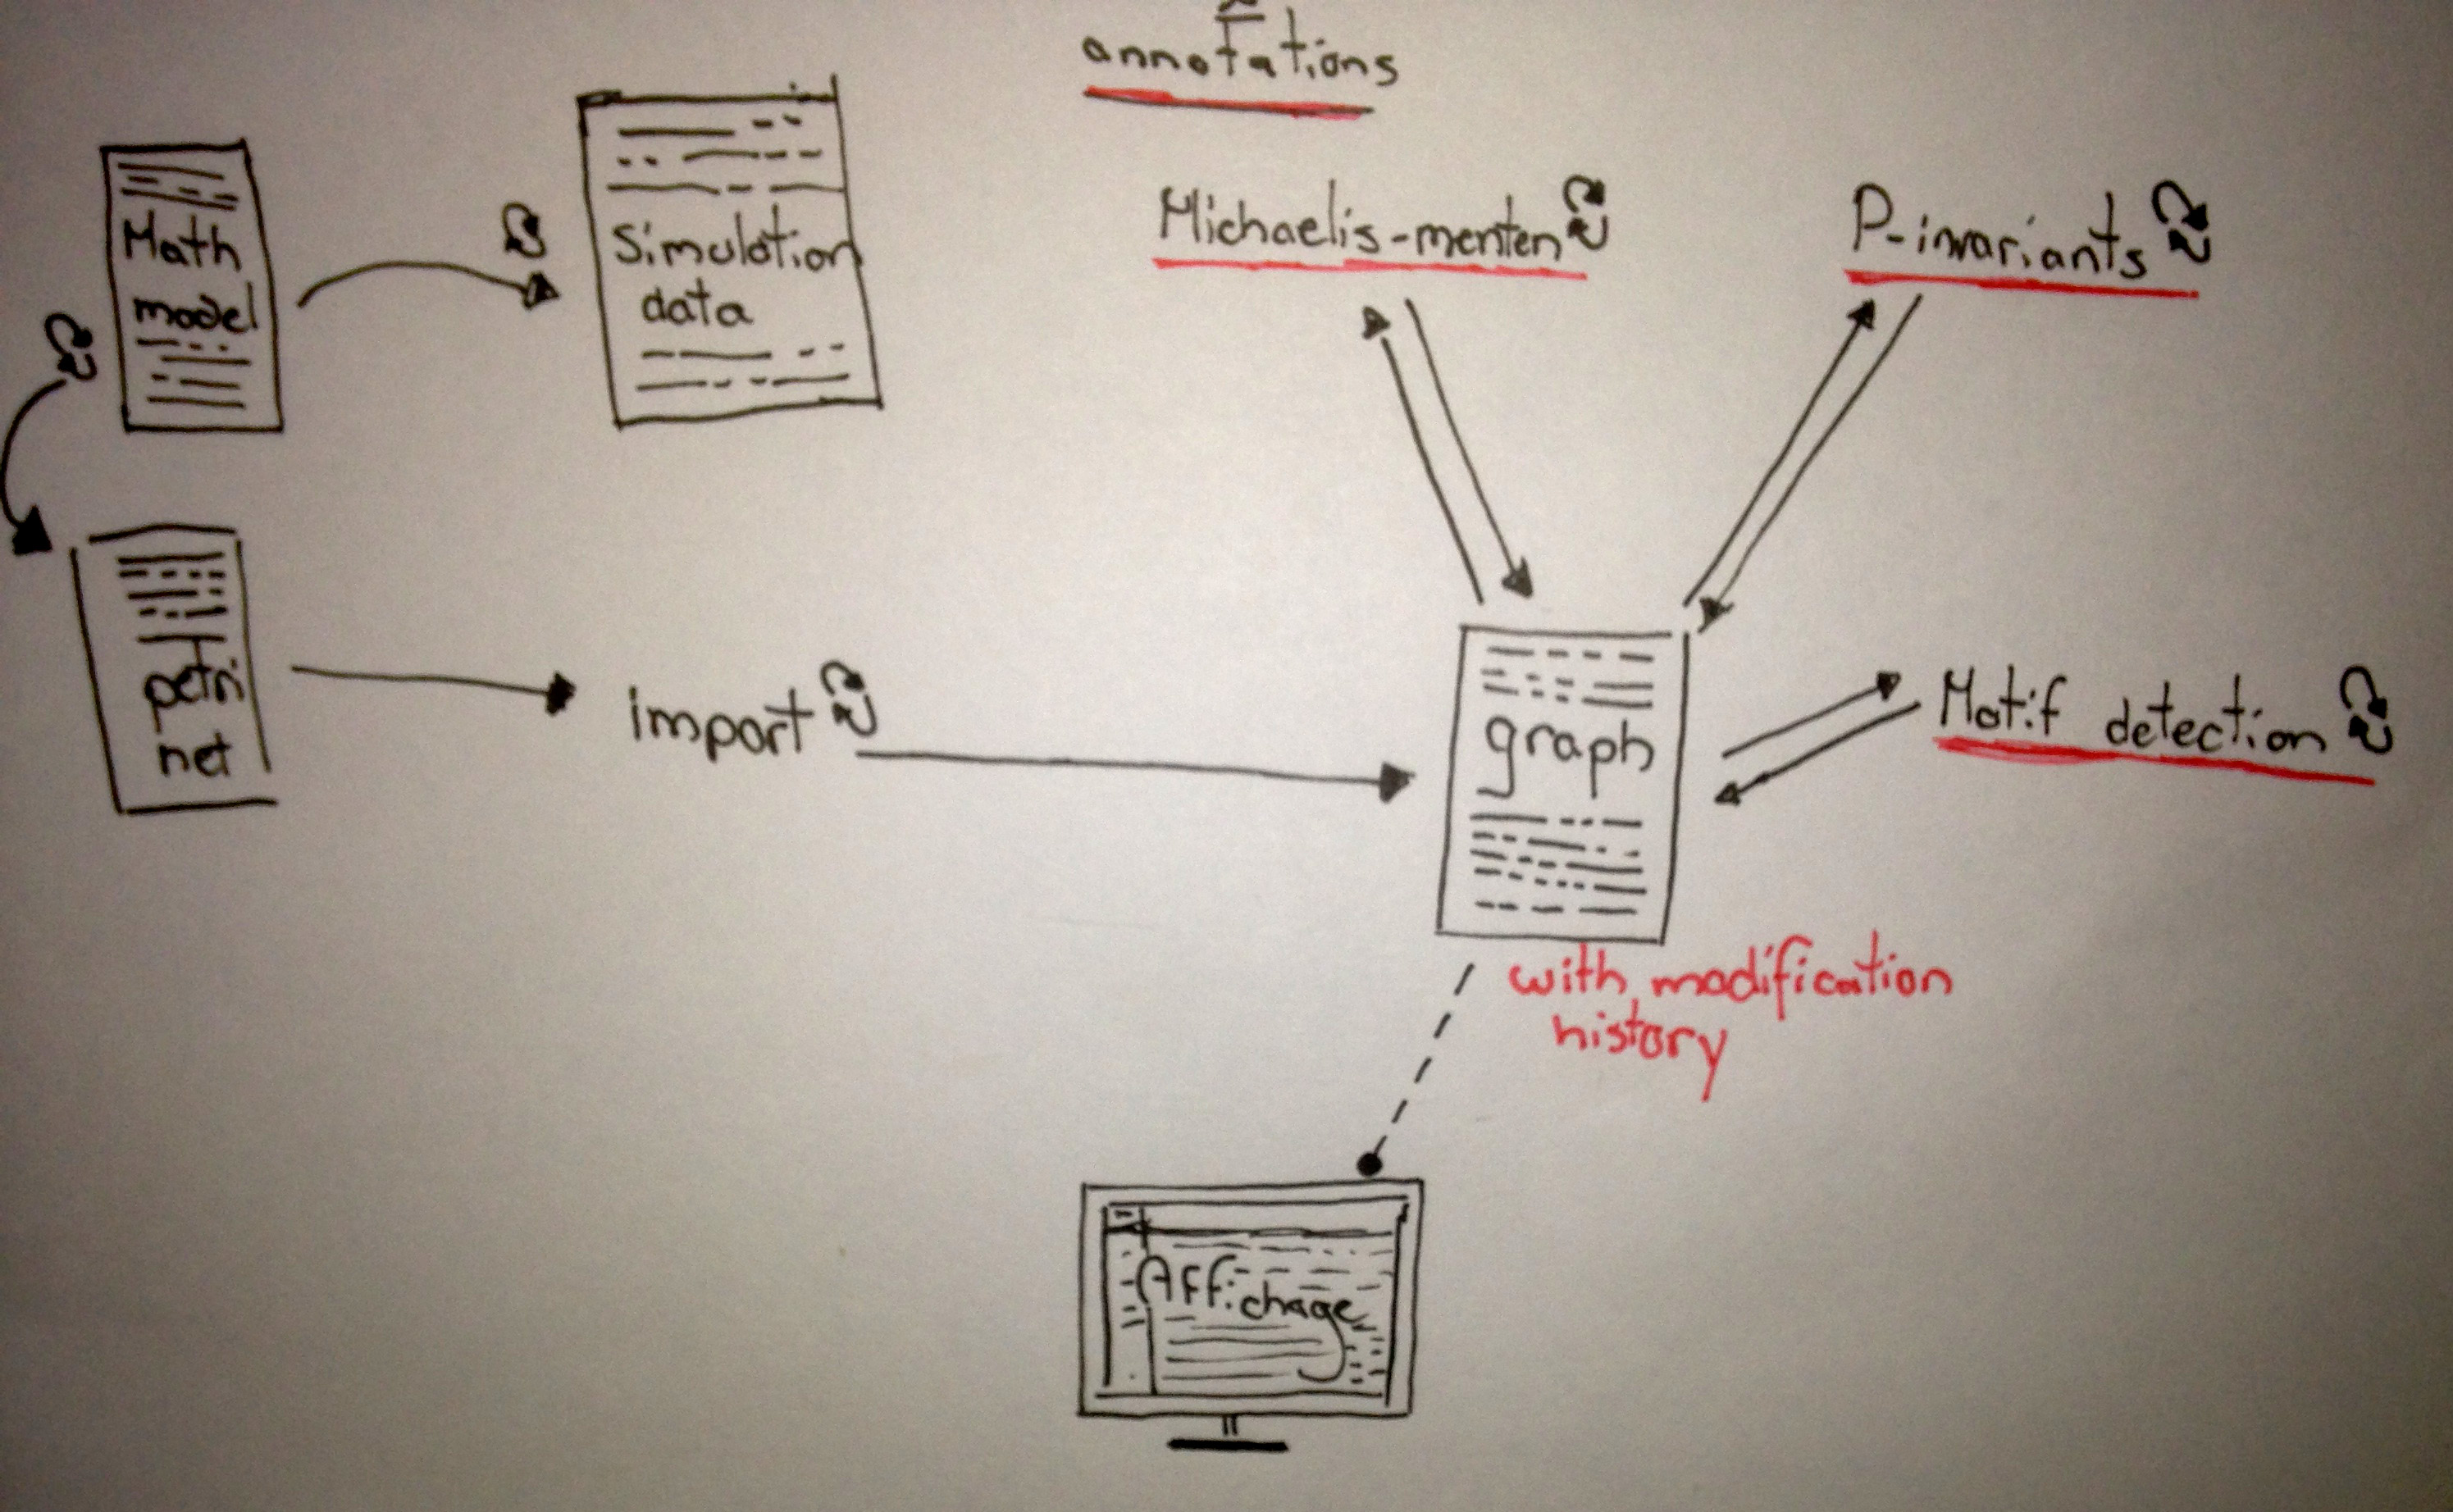 annotations
Math
model
Simulation
data
Michaelis-menten
P-invariants
petri
net
import
graph
Motif detection
with modification
history
Affichage